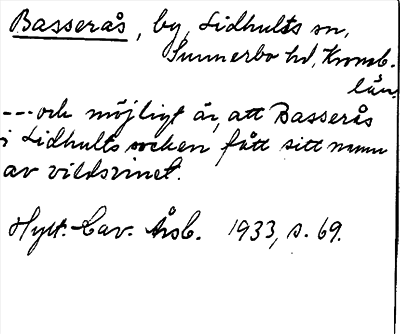 Basserås, by, Lidhults sn,
Sunnerbo hd, Kronob.
län.
--- och möjligt är, att Basserås
i Lidhults socken fått sitt namn
av vildsvinet.
Hylt.-Cav. Årsb. 1933, s. 69.